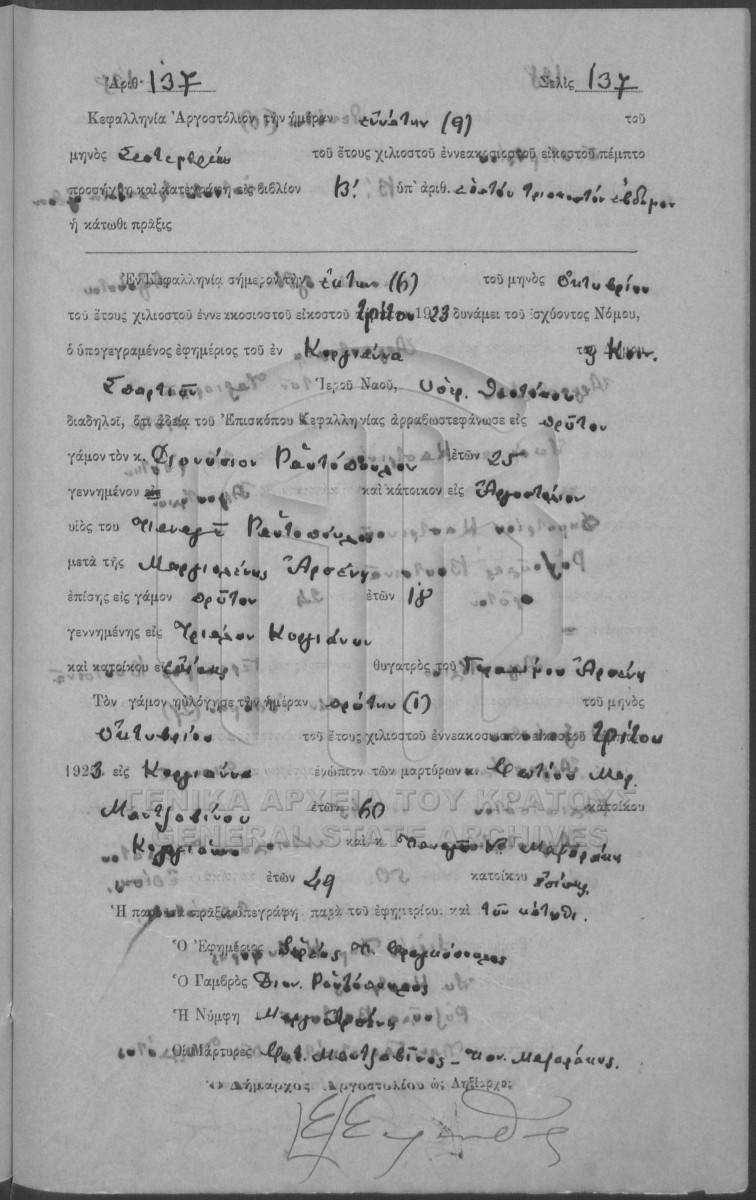 Ἀριθ. 137 Σελὶς 137
Κεφαλληνία Ἀργοστόλιον τὴν ἡμέραν ἐννάτην (9) τοῦ
μηνὸς Σεπτεμβρίου τοῦ ἔτους χιλιοστοῦ ἐννεακοσιοστοῦ εἰκοστοῦ πέμπτο
προσήχθη καὶ κατεγράφη εἰς βιβλίον Β'. ὑπ' ἀριθ. ἑκατόν τριακοστόν ἕβδομον
ἡ κάτωθι πρᾶξις
Ἐν Κεφαλληνίᾳ σήμερον τὴν ἕκτην (6) τοῦ μηνὸς Ὀκτωβρίου
τοῦ ἔτους χιλιοστοῦ ἐννεακοσιοστοῦ εἰκοστοῦ τρίτου 1923 δυνάμει τοῦ ἰσχύοντος Νόμου,
ὁ ὑπογεγραμένος ἐφημέριος τοῦ ἐν Κοργιαννα Κοιν.
Σπαρτιῶν Ἱεροῦ Ναοῦ, Ὑπερ. Θεοτόκου
διαδηλοῖ, ὅτι ἀδείᾳ τοῦ Ἐπισκόπου Κεφαλληνίας ἀρραβωστεφάνωσε εἰς πρῶτον
γάμον τὸν κ. Διονύσιον Ραυτόπουλον ἐτῶν 25
γεννημένον καὶ κάτοικον εἰς Ἀργοστόλιον
υἱὸς του Παναγῆ Ραυτοπούλου
μετὰ τῆς Μαργιολένης Ἀρσένη
ἐπίσης εἰς γάμον πρῶτον ἐτῶν 18
γεννημένης εἰς Κοργιάννα
καὶ κατοίκου εἰς θυγατρὸς τοῦ Γερασίμου Ἀρσένη
Τὸν γάμον ηὐλόγησε τὴν ἡμέραν πρώτην (1) τοῦ μηνὸς
Ὀκτωβρίου τοῦ ἔτους χιλιοστοῦ ἐννεακοσιοστοῦ εἰκοστοῦ τρίτου
1923 εἰς Κοργιαννα ἐνώπιον τῶν μαρτύρων κ. Φωτίου Μαρ.
Μαντζαβίνου ἐτῶν 60 κατοίκου
καὶ κ. Μαζαράκη
ἐτῶν 49 κατοίκου ἐπίσης.
Ἡ παροῦσα πρᾶξις ὑπεγράφη παρὰ τοῦ ἐφημερίου καὶ τῶν κάτωθι.
Ὁ Ἐφημέριος Ἱερεὺς
Ὁ Γαμβρὸς Διον. Ραυτόπουλος
Ἡ Νύμφη Ἀρσένη
Οἱ Μάρτυρες Φωτ. Μαντζαβῖνος – Παν. Μαζαράκης.
Ὁ Δήμαρχος Ἀργοστολίου ὡς Ληξίαρχος
ΓΕΝΙΚΑ ΑΡΧΕΙΑ ΤΟΥ ΚΡΑΤΟΥΣ
GENERAL STATE ARCHIVES